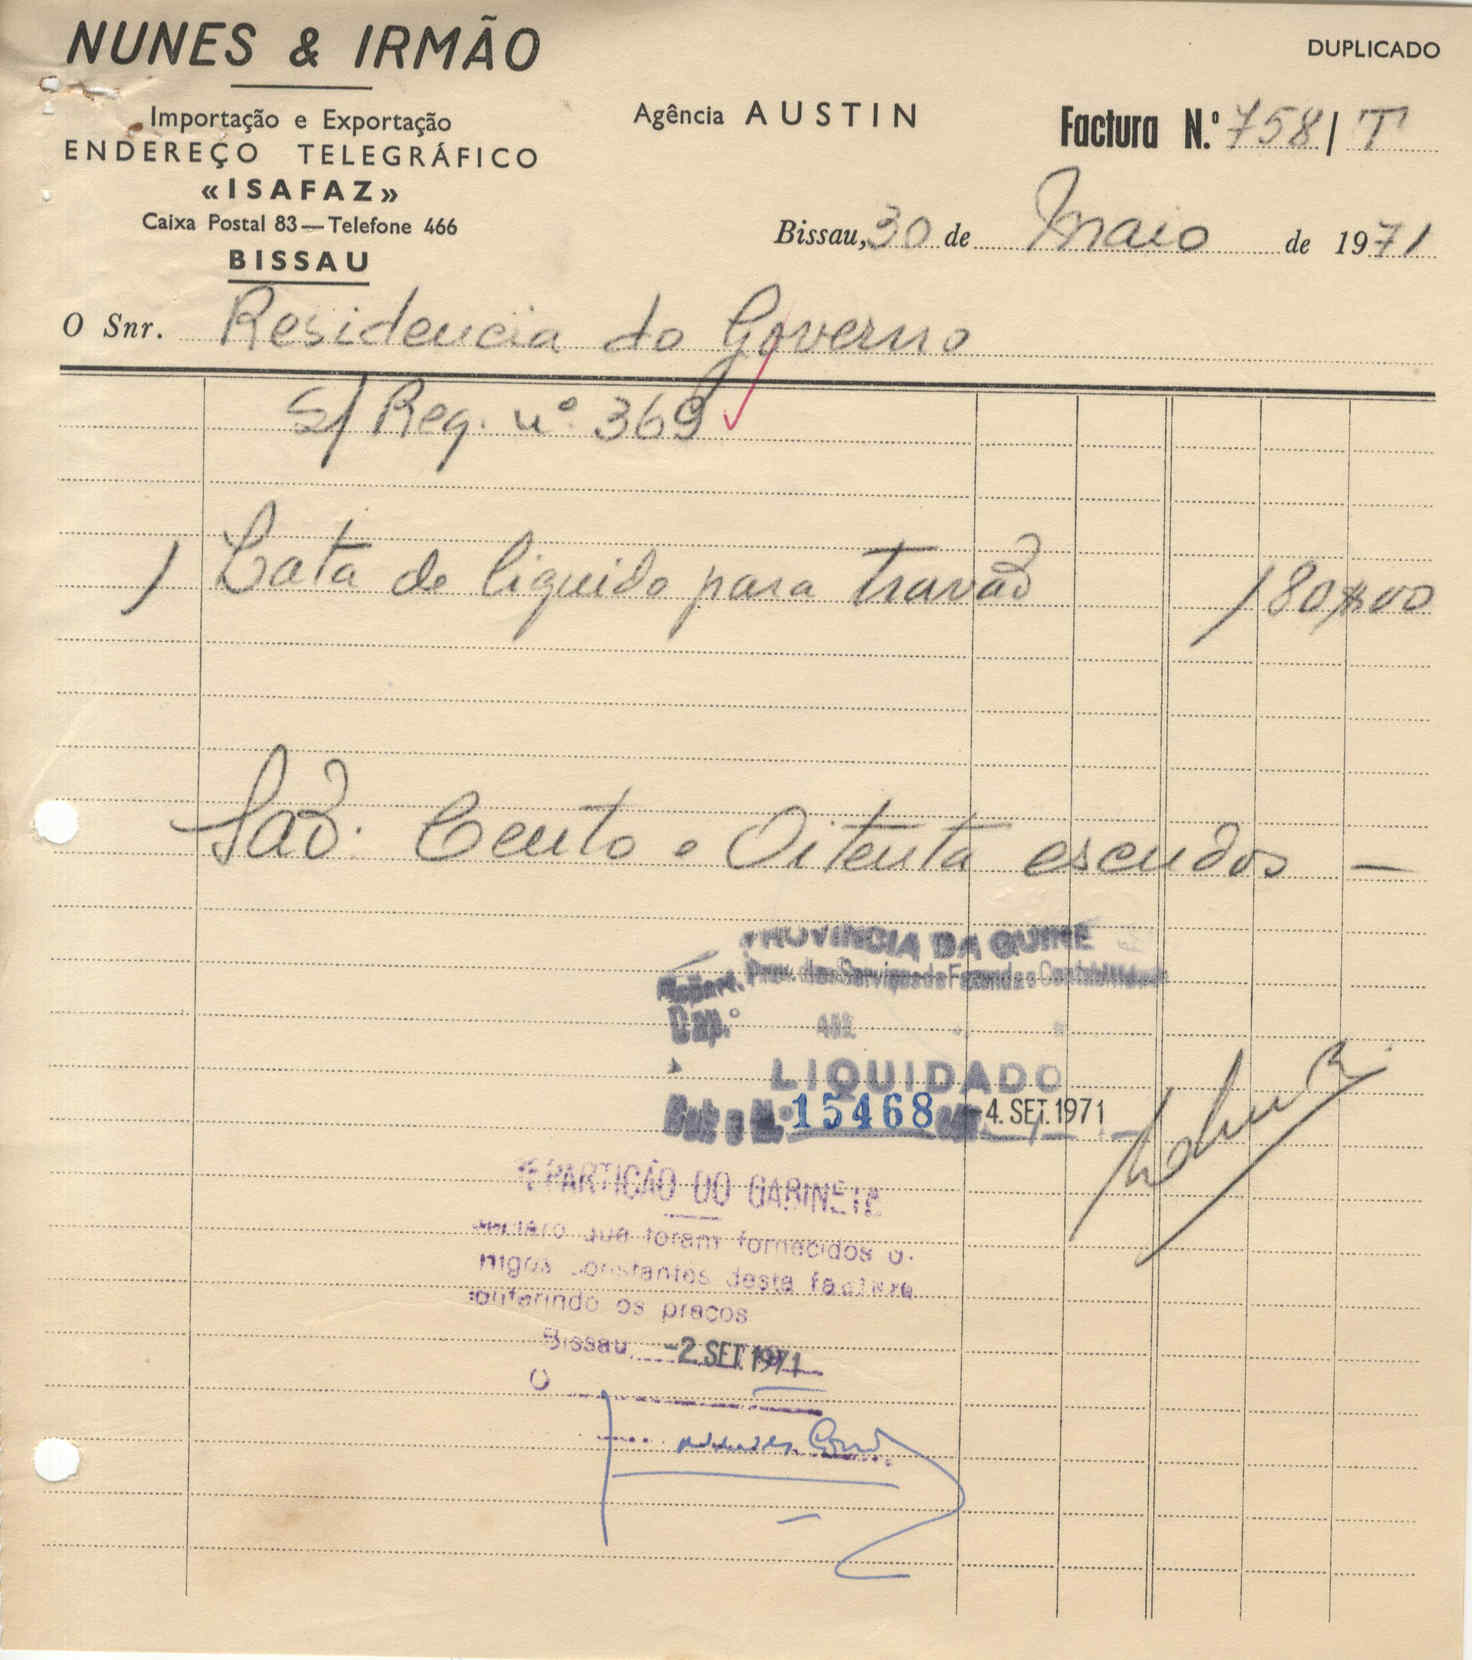 NUNES & IRMÃO
DUPLICADO
Importação e Exportação
ENDEREÇO TELEGRÁFICO
«ISAFAZ»
Caixa Postal 83—Telefone 466
BISSAU
Agência AUSTIN
Factura N.º 758/T
Bissau, 30 de Maio de 1971
O Snr. Residencia do Governo
S/ Req. nº 369
1 Lata de liquido para travão 180$00
São: Cento e Oitenta escudos —
PROVINCIA DA GUINÉ
Prov. dos Serviços de Fazenda e Contabilidade
Cap.º
LIQUIDADO
15468 4. SET. 1971
REPARTIÇÃO DO GABINETE
que foram fornecidos
constantes desta factura
conferindo os preços
Bissau, -2. SET. 1971
O